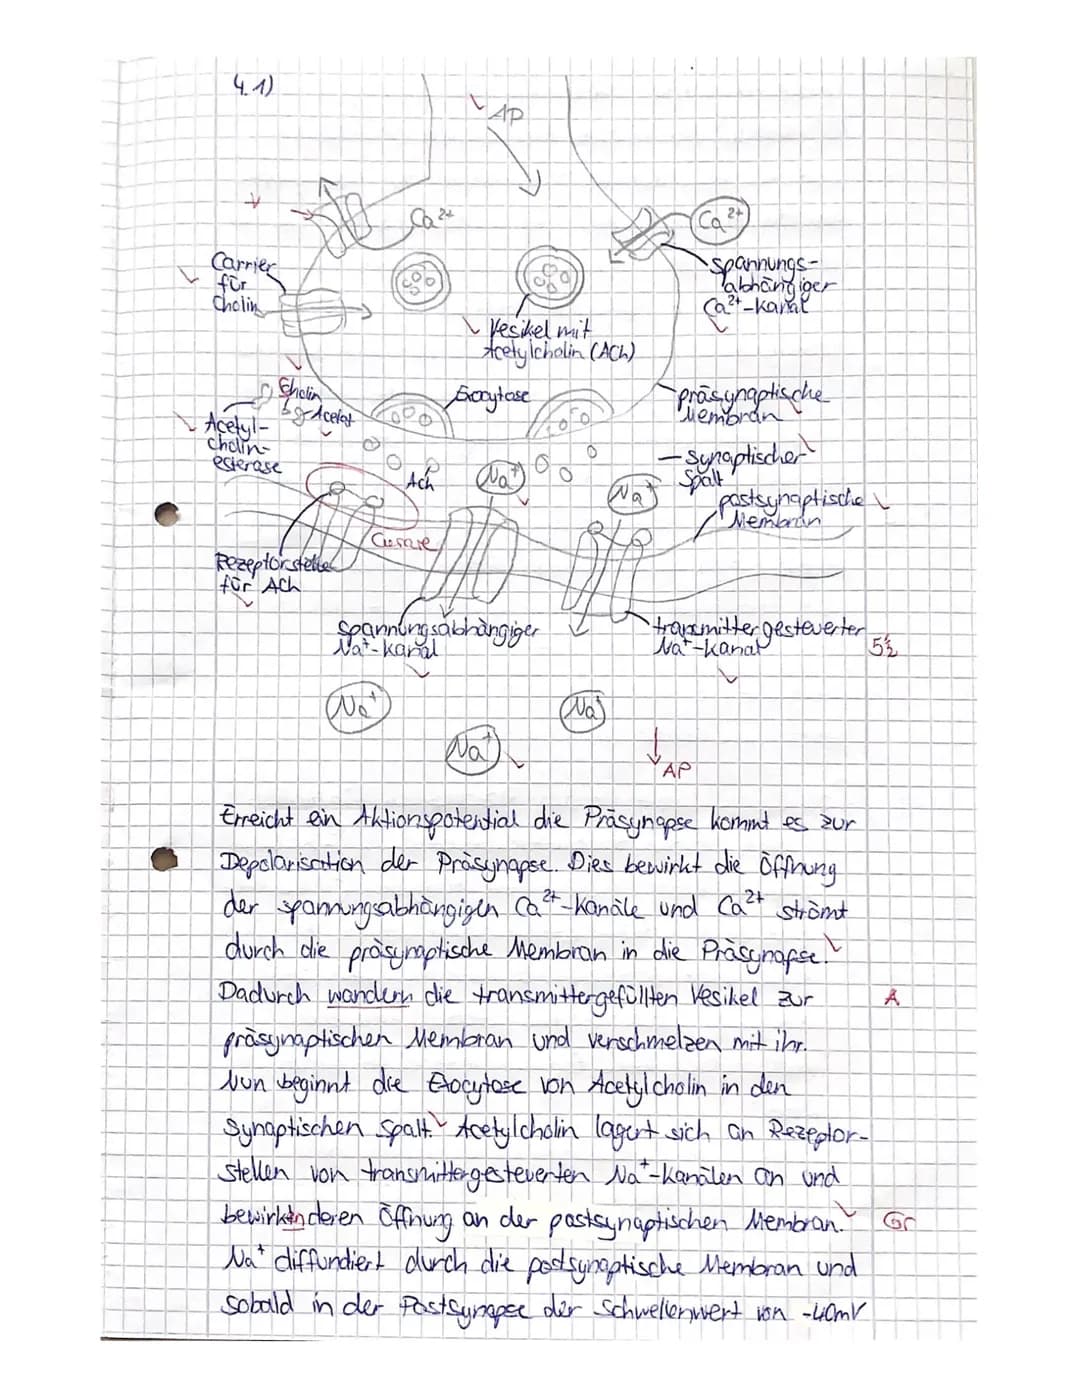 4.1)
AP
Ca²⁺
Ca²⁺
Carrier
für
Cholin
spannungs-
abhängiger
Ca²⁺-kanal
Vesikel mit
Acetylcholin (ACh)
Cholin
Acetat
Exocytose
präsynaptische
Membran
Acetyl-
cholin-
esterase
Ach
Na⁺
Na⁺
synaptischer
Spalt
postsynaptische
Membran
Curare
Rezeptorstelle
für ACh
spannungsabhängiger
Na⁺-kanal
transmittergesteuerter
Na⁺-kanal
5½
Na⁺
Na⁺
Na⁺
AP
Erreicht ein Aktionspotential die Präsynapse kommt es zur
Depolarisation der Präsynapse. Dies bewirkt die Öffnung
der spannungsabhängigen Ca²⁺-Kanäle und Ca²⁺ strömt
durch die präsynaptische Membran in die Präsynapse.
Dadurch wandern die transmittergefüllten Vesikel zur A
präsynaptischen Membran und verschmelzen mit ihr.
Nun beginnt die Exocytose von Acetylcholin in den
synaptischen Spalt. Acetylcholin lagert sich an Rezeptor-
stellen von transmittergesteuerten Na⁺-Kanälen an und
bewirken deren Öffnung an der postsynaptischen Membran. Gr
Na⁺ diffundiert durch die postsynaptische Membran und
sobald in der Postsynapse der Schwellenwert von -40mV